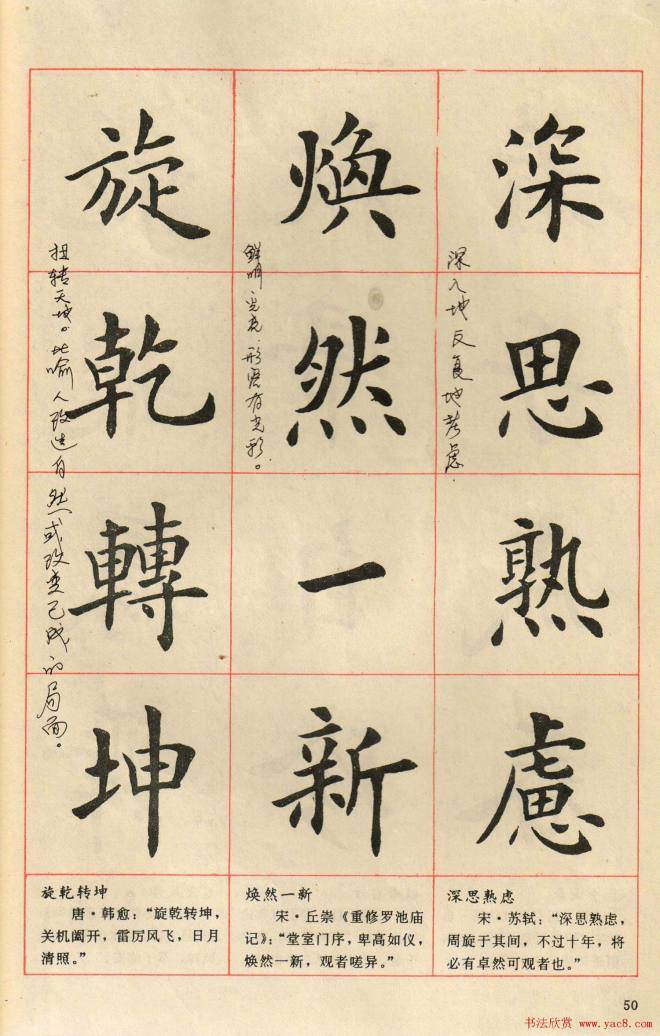 深思熟慮
深入地反复地考虑.
煥然一新
鲜明光亮.形容有光彩。
旋乾轉坤
扭转天地。比喻人改造自然或改变已成的局面。
旋乾转坤
唐·韩愈：“旋乾转坤，
关机阖开，雷厉风飞，日月
清照。”
焕然一新
宋·丘崇《重修罗池庙
记》：“堂室门序，卑高如仪，
焕然一新，观者嗟异。”
深思熟虑
宋·苏轼：“深思熟虑，
周旋于其间，不过十年，将
必有卓然可观者也。”
50
书法欣赏
www.yac8.com